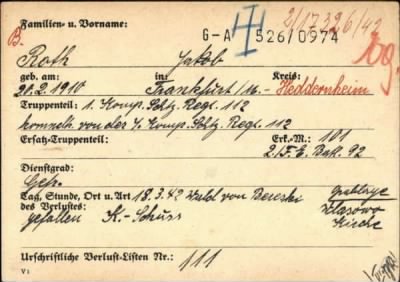 Familien- u. Vorname:
G-A 526/0974
B.
Roth Jakob
geb. am: in: Kreis:
21.2.1910 Frankfurt/M.- Heddernheim
Truppenteil: 1. Komp. Schtz. Regt. 112
von der 4. Komp. Schtz. Regt. 112
Ersatz-Truppenteil: Erk.-M.: 101
2./F. E. Batl. 92
Dienstgrad:
Gefr.
Tag, Stunde, Ort u. Art 18.3.42 Wald von Bereski
des Verlustes: Grablage
gefallen K.-Schuss Wlasowo
Kirche
Urschriftliche Verlust-Listen Nr.: 111
V 1